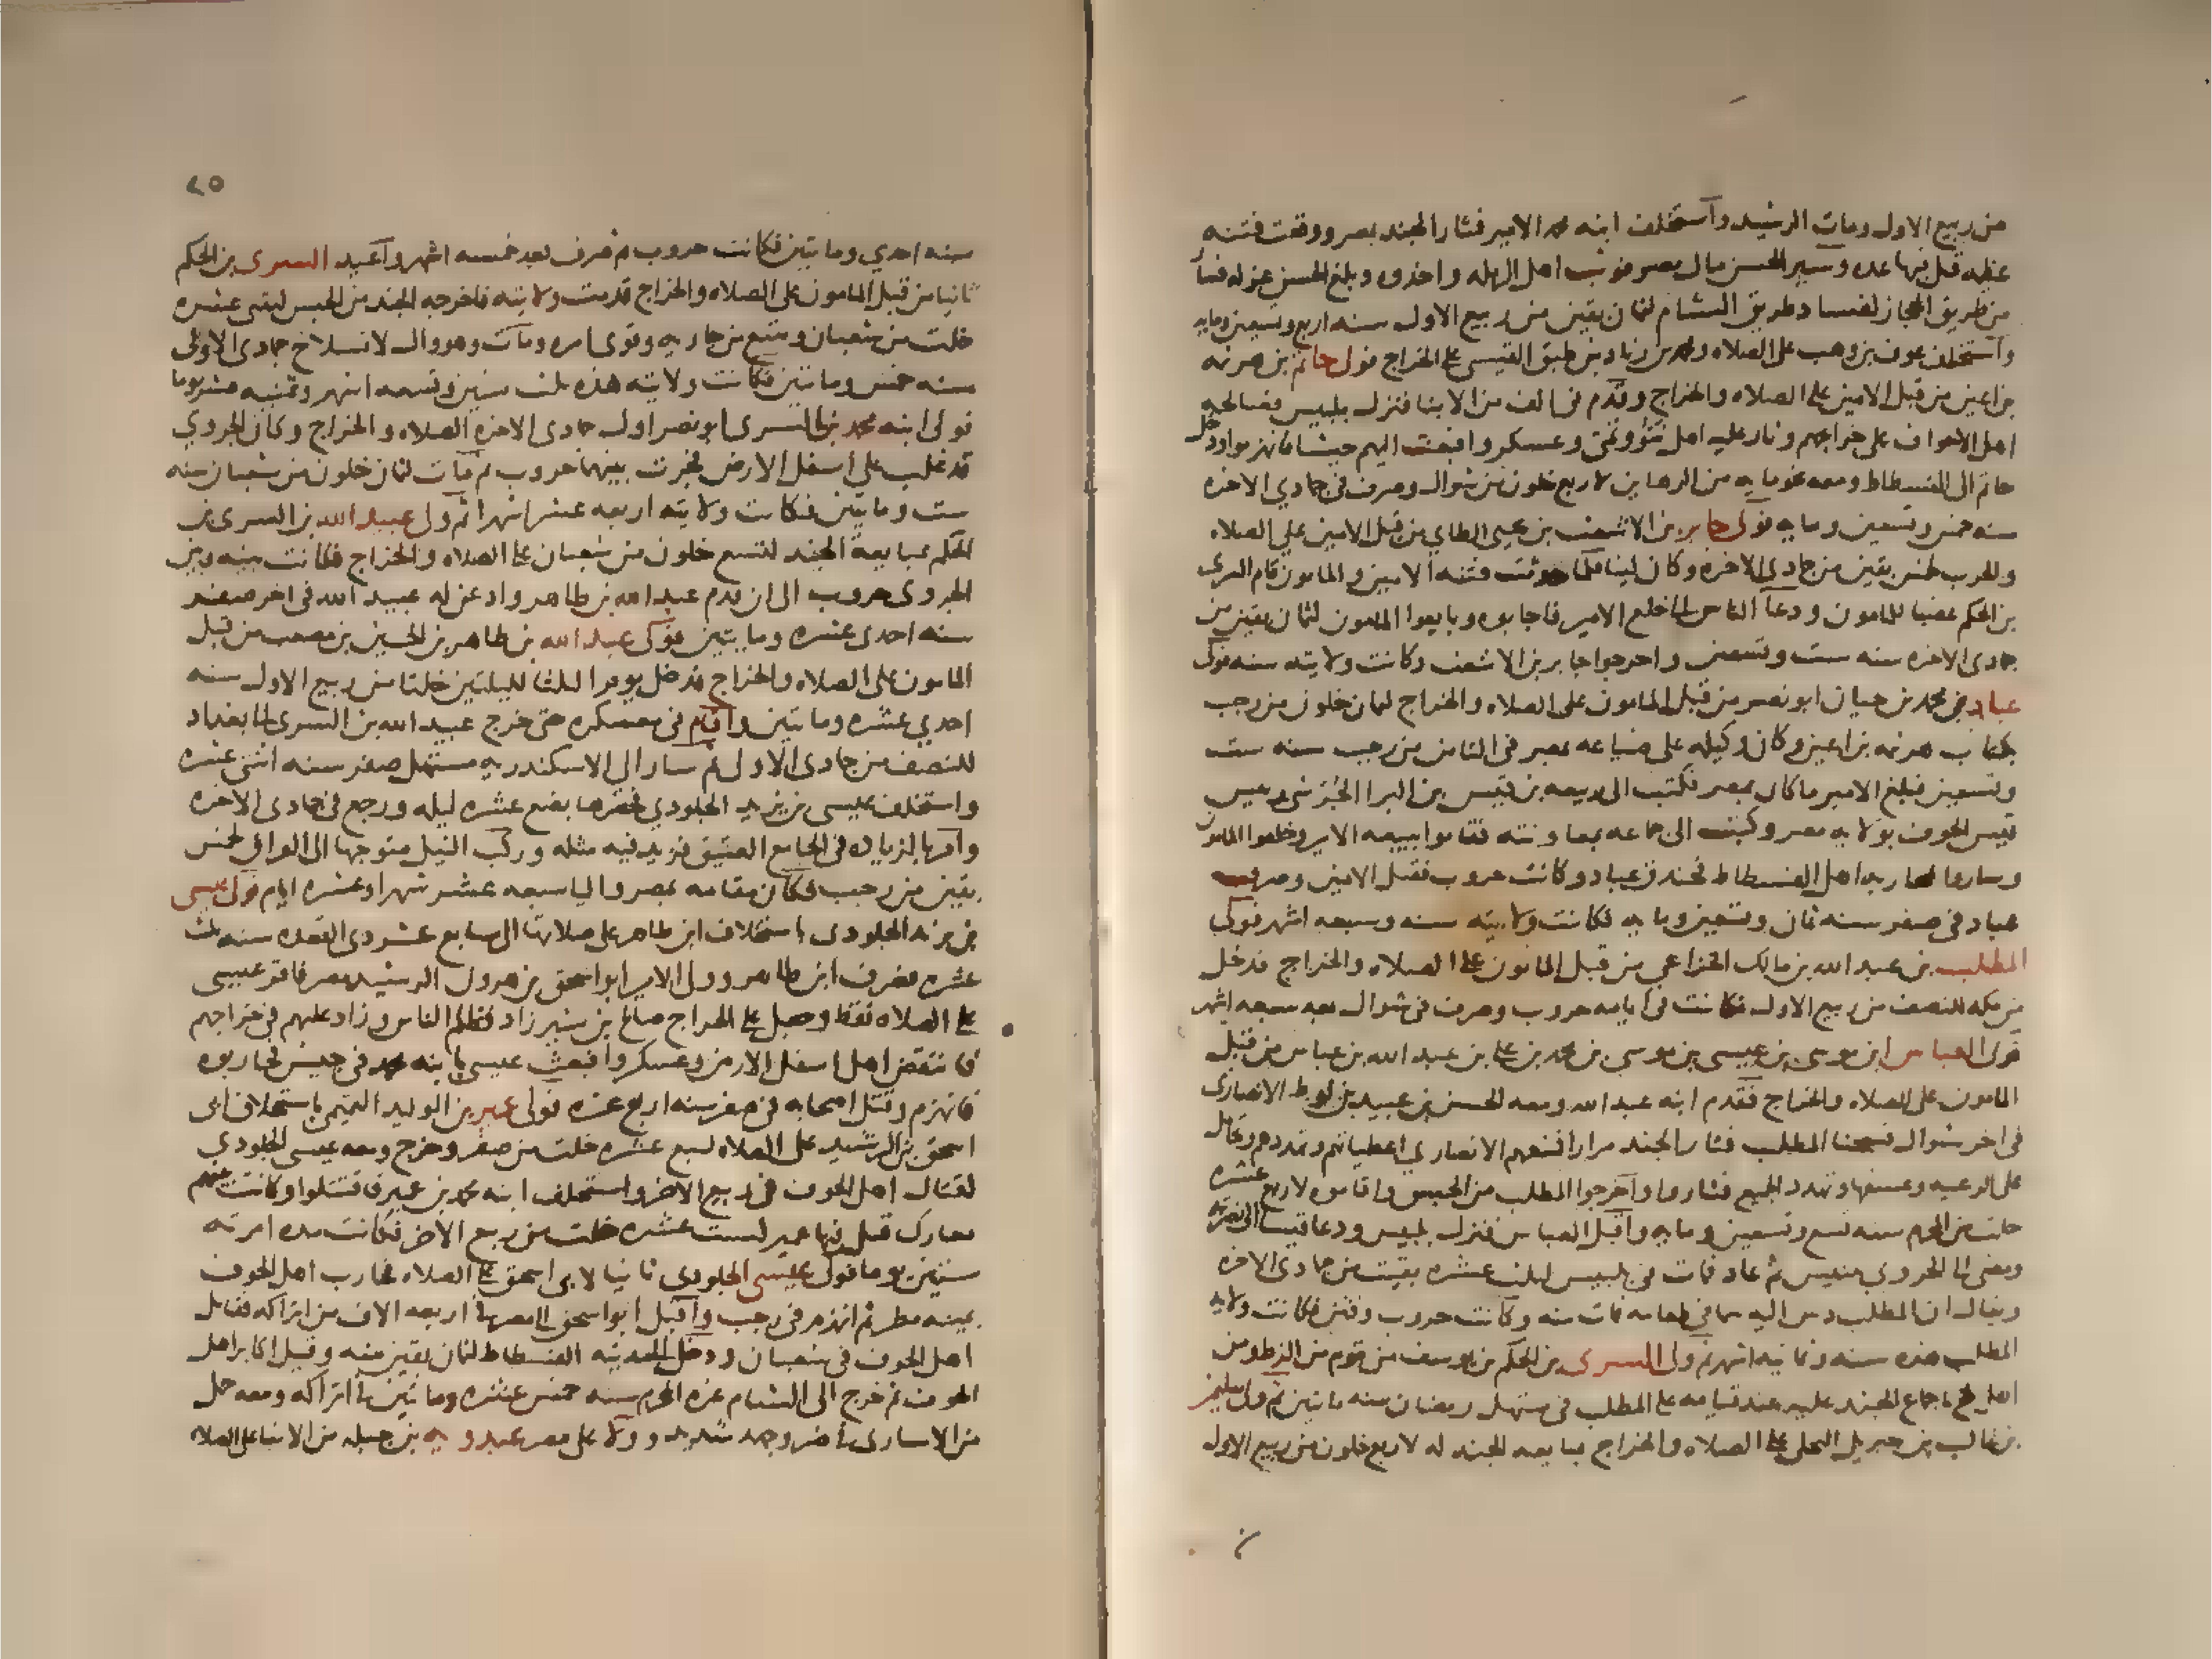 من ربيع الاول ومات الرشيد واستخلف ابنه محمد الامير فثار الجند بمصر ووقعت فتنه
عظيمه قتل فيها عده وسير الحسن مال مصر فوثب اهل الرمله واخذوه وبلغ الحسن عزله فسار
من طريق الحجاز لفساد طريق الشام لثمان بقين من ربيع الاول سنه اربع وتسعين ومايه
واستخلف عوف بن وهب على الصلاه ومحمد بن زياد بن طبق القيسي على الخراج فولى حاتم بن هرثمه
بن اعين من قبل الامين على الصلاه والخراج وقدم في الف من الابنا فنزل بلبيس فصالحه
اهل الاحواف على خراجهم وثار عليه اهل نتو وتمى وعسكروا فبعث اليهم جيشا فانهزموا ودخل
حاتم الى الفسطاط ومعه نحو مايه من الرهاين لاربع خلون من شوال وصرف في جمادي الاخره
سنه خمس وتسعين ومايه فولى جابر بن الاشعث بن يحيى الطاي من قبل الامين علي الصلاه
والحرب لخمس بقين من جمادي الاخره وكان لينا فلما حدثت فتنه الامين والمامون قام السرى
بن الحكم غضبا للمامون ودعا الناس الى خلع الامير فاجابوه وبايعوا المامون لثمان بقين من
جمادى الاخره سنه ست وتسعين واخرجوا جابر بن الاشعث وكانت ولايته سنه فولى
عباد بن محمد بن حيان ابو نصر من قبل المامون على الصلاه والخراج لثمان خلون من رجب
بكتاب هرثمه بن اعين وكان وكيله على ضياعه بمصر في الثامن من رجب سنه ست
وتسعين فبلغ الامير ما كان بمصر فكتب الى ربيعه بن قيس بن البرا الجرشي رييس
قيس الحوف بولايه مصر وكتب الى جماعه بمعاونته فقاموا ببيعه الامير وخلعوا المامون
وساروا لمحاربه اهل الفسطاط فخندق عباد وكانت حروب فقتل الامين وصرف
عباد في صفر سنه ثمان وتسعين ومايه فكانت ولايته سنه وسبعه اشهر فولى
المطلب بن عبد الله بن مالك الخزاعي من قبل المامون على الصلاه والخراج فدخل
من مكه للنصف من ربيع الاول فكانت في ايامه حروب وصرف في شوال بعد سبعه اشهر
فولى العباس ابن موسى بن عيسى بن موسى بن محمد بن علي بن عبد الله بن عباس من قبل
المامون على الصلاه والخراج فقدم ابنه عبد الله ومعه الحسن بن عبيد بن لوط الانصارى
في اخر شوال فسجنا المطلب فثار الجند مرارا فمنعهم الانصاري اعطياتهم وتهددهم وتحامل
على الرعيه وعسفها وتهدد الجميع فثاروا واخرجوا المطلب من الحبس واقاموه لاربع عشره
خلت من المحرم سنه تسع وتسعين ومايه واقبل العباس فنزل بلبيس ودعا قيسا الى نصرته
ومضى الى الجروي بتنيس ثم عاد فمات في بلبيس لثلث عشره بقيت من جمادى الاخره
ويقال ان المطلب دس اليه سما في طعامه فمات منه وكانت حروب وفتن فكانت ولايه
المطلب هذه سنه وثمانيه اشهر ثم ولى السرى بن الحكم بن يوسف من قوم من الزط ومن
اهل بلخ باجماع الجند عليه عند قيامه على المطلب في مستهل رمضان سنه مايتين ثم ولى سليمن
بن غالب بن جبريل البجلى على الصلاه والخراج بمبايعه الجند له لاربع خلون من ربيع الاول
٢٥
سنه احدي ومايتين فكانت حروب ثم صرف بعد خمسه اشهر واعيد السرى بن الحكم
ثانيا من قبل المامون على الصلاه والخراج قدمت ولايته فاخرجه الجند من الحبس لثنتى عشره
خلت من شعبان وتتبع من حاربه وقوى امره ومات وهو وال لانسلاخ جمادى الاولى
سنه خمس ومايتين فكانت ولايته هذه ثلث سنين وتسعه اشهر وثمنيه عشر يوما
فولى ابنه محمد بن السرى ابو نصر اول جمادى الاخره الصلاه والخراج وكان الجروي
قد غلب على اسفل الارض فجرت بينهما حروب ثم مات لثمان خلون من شعبان سنه
ست ومايتين فكانت ولايته اربعه عشر شهرا ثم ولى عبيد الله بن السرى بن
الحكم بمبايعة الجند لتسع خلون من شعبان على الصلاه والخراج فكانت بينه وبين
الجروى حروب الى ان قدم عبد الله بن طاهر واذعن له عبيد الله في اخر صفر
سنه احدى عشره ومايتين فولى عبد الله بن طاهر بن الحسين بن مصعب من قبل
المامون على الصلاه والخراج فدخل يوم الثلثا لليلتين خلتا من ربيع الاول سنه
احدي عشره ومايتين واقام في معسكره حتى خرج عبيد الله بن السرى الى بغداد
للنصف من جمادى الاول ثم سار الى الاسكندريه مستهل صفر سنه اثنتى عشره
واستخلف عيسى بن يزيد الجلودي فحصرها بضع عشره ليله ورجع في جمادى الاخره
وامر بالزياده في الجامع العتيق فزيد فيه مثله وركب النيل متوجها الى العراق لخمس
بقين من رجب فكان مقامه بمصر واليا سبعه عشر شهرا وعشره ايام ثم ولى عيسى
بن يزيد الجلودى باستخلاف ابن طاهر على صلاتها الى سابع عشر ذى القعده سنه ثلث
عشره فصرف ابن طاهر وولى الامير ابو اسحق بن هرون الرشيد مصر فاقر عيسى
على الصلاه فقط وجعل على الخراج صالح بن شيرزاد فظلم الناس وزاد عليهم في خراجهم
فانتقض اهل اسفل الارض وعسكروا فبعث عيسى بابنه محمد في جيش فحاربوه
فانهزم وقتل اصحابه في صفر سنه اربع عشره فولى عمير بن الوليد التميمى باستخلاف ابى
اسحق بن الرشيد على الصلاه لسبع عشره خلت من صفر وخرج ومعه عيسى الجلودي
لقتال اهل الحوف في ربيع الاخر واستخلف ابنه محمد بن عمير فاقتتلوا وكانت بينهم
معارك قتل فيها عمير لست عشره خلت من ربيع الاخر فكانت مده امرته
ستين يوما فولى عيسى الجلودى ثانيا لابى اسحق على الصلاه فحارب اهل الحوف
بمينه مطر ثم انهزم في رجب واقبل ابو اسحق الى مصر في اربعه الاف من اتراكه فقاتل
اهل الحوف في شعبان ودخل المدينه الفسطاط لثمان بقين منه وقتل اكابر اهل
الحوف ثم خرج الى الشام غره المحرم سنه خمس عشره ومايتين في اتراكه ومعه جمل
من الاسارى في ضر وجهد شديد وولا على مصر عبدويه بن جبله من الابنا على الصلاه